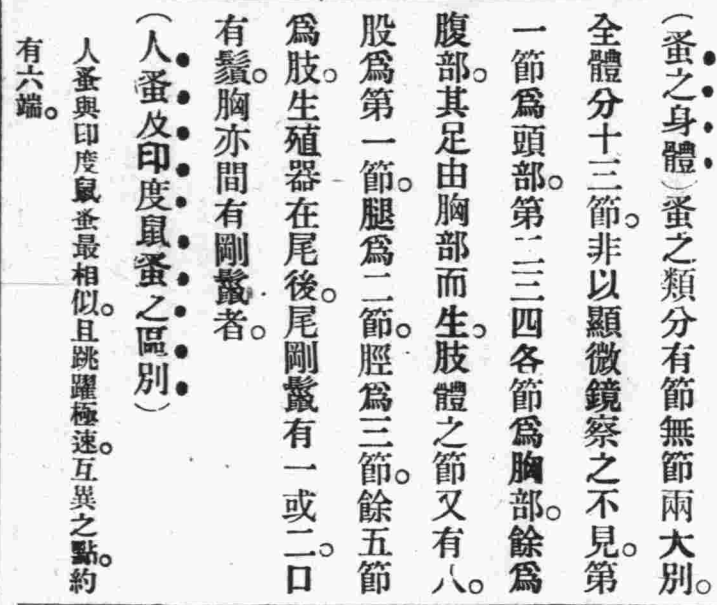 （蚤之身體）蚤之類分有節無節兩大別。
全體分十三節。非以顯微鏡察之不見。第
一節爲頭部。第二三四各節爲胸部。餘爲
腹部。其足由胸部而生。肢體之節又有八。
股爲第一節。腿爲二節。脛爲三節。餘五節
爲肢。生殖器在尾後。尾剛鬣有一或二。口
有鬚。胸亦間有剛鬣者。
（人蚤及印度鼠蚤之區別）
人蚤與印度鼠蚤最相似。且跳躍極速。互異之點。約
有六端。